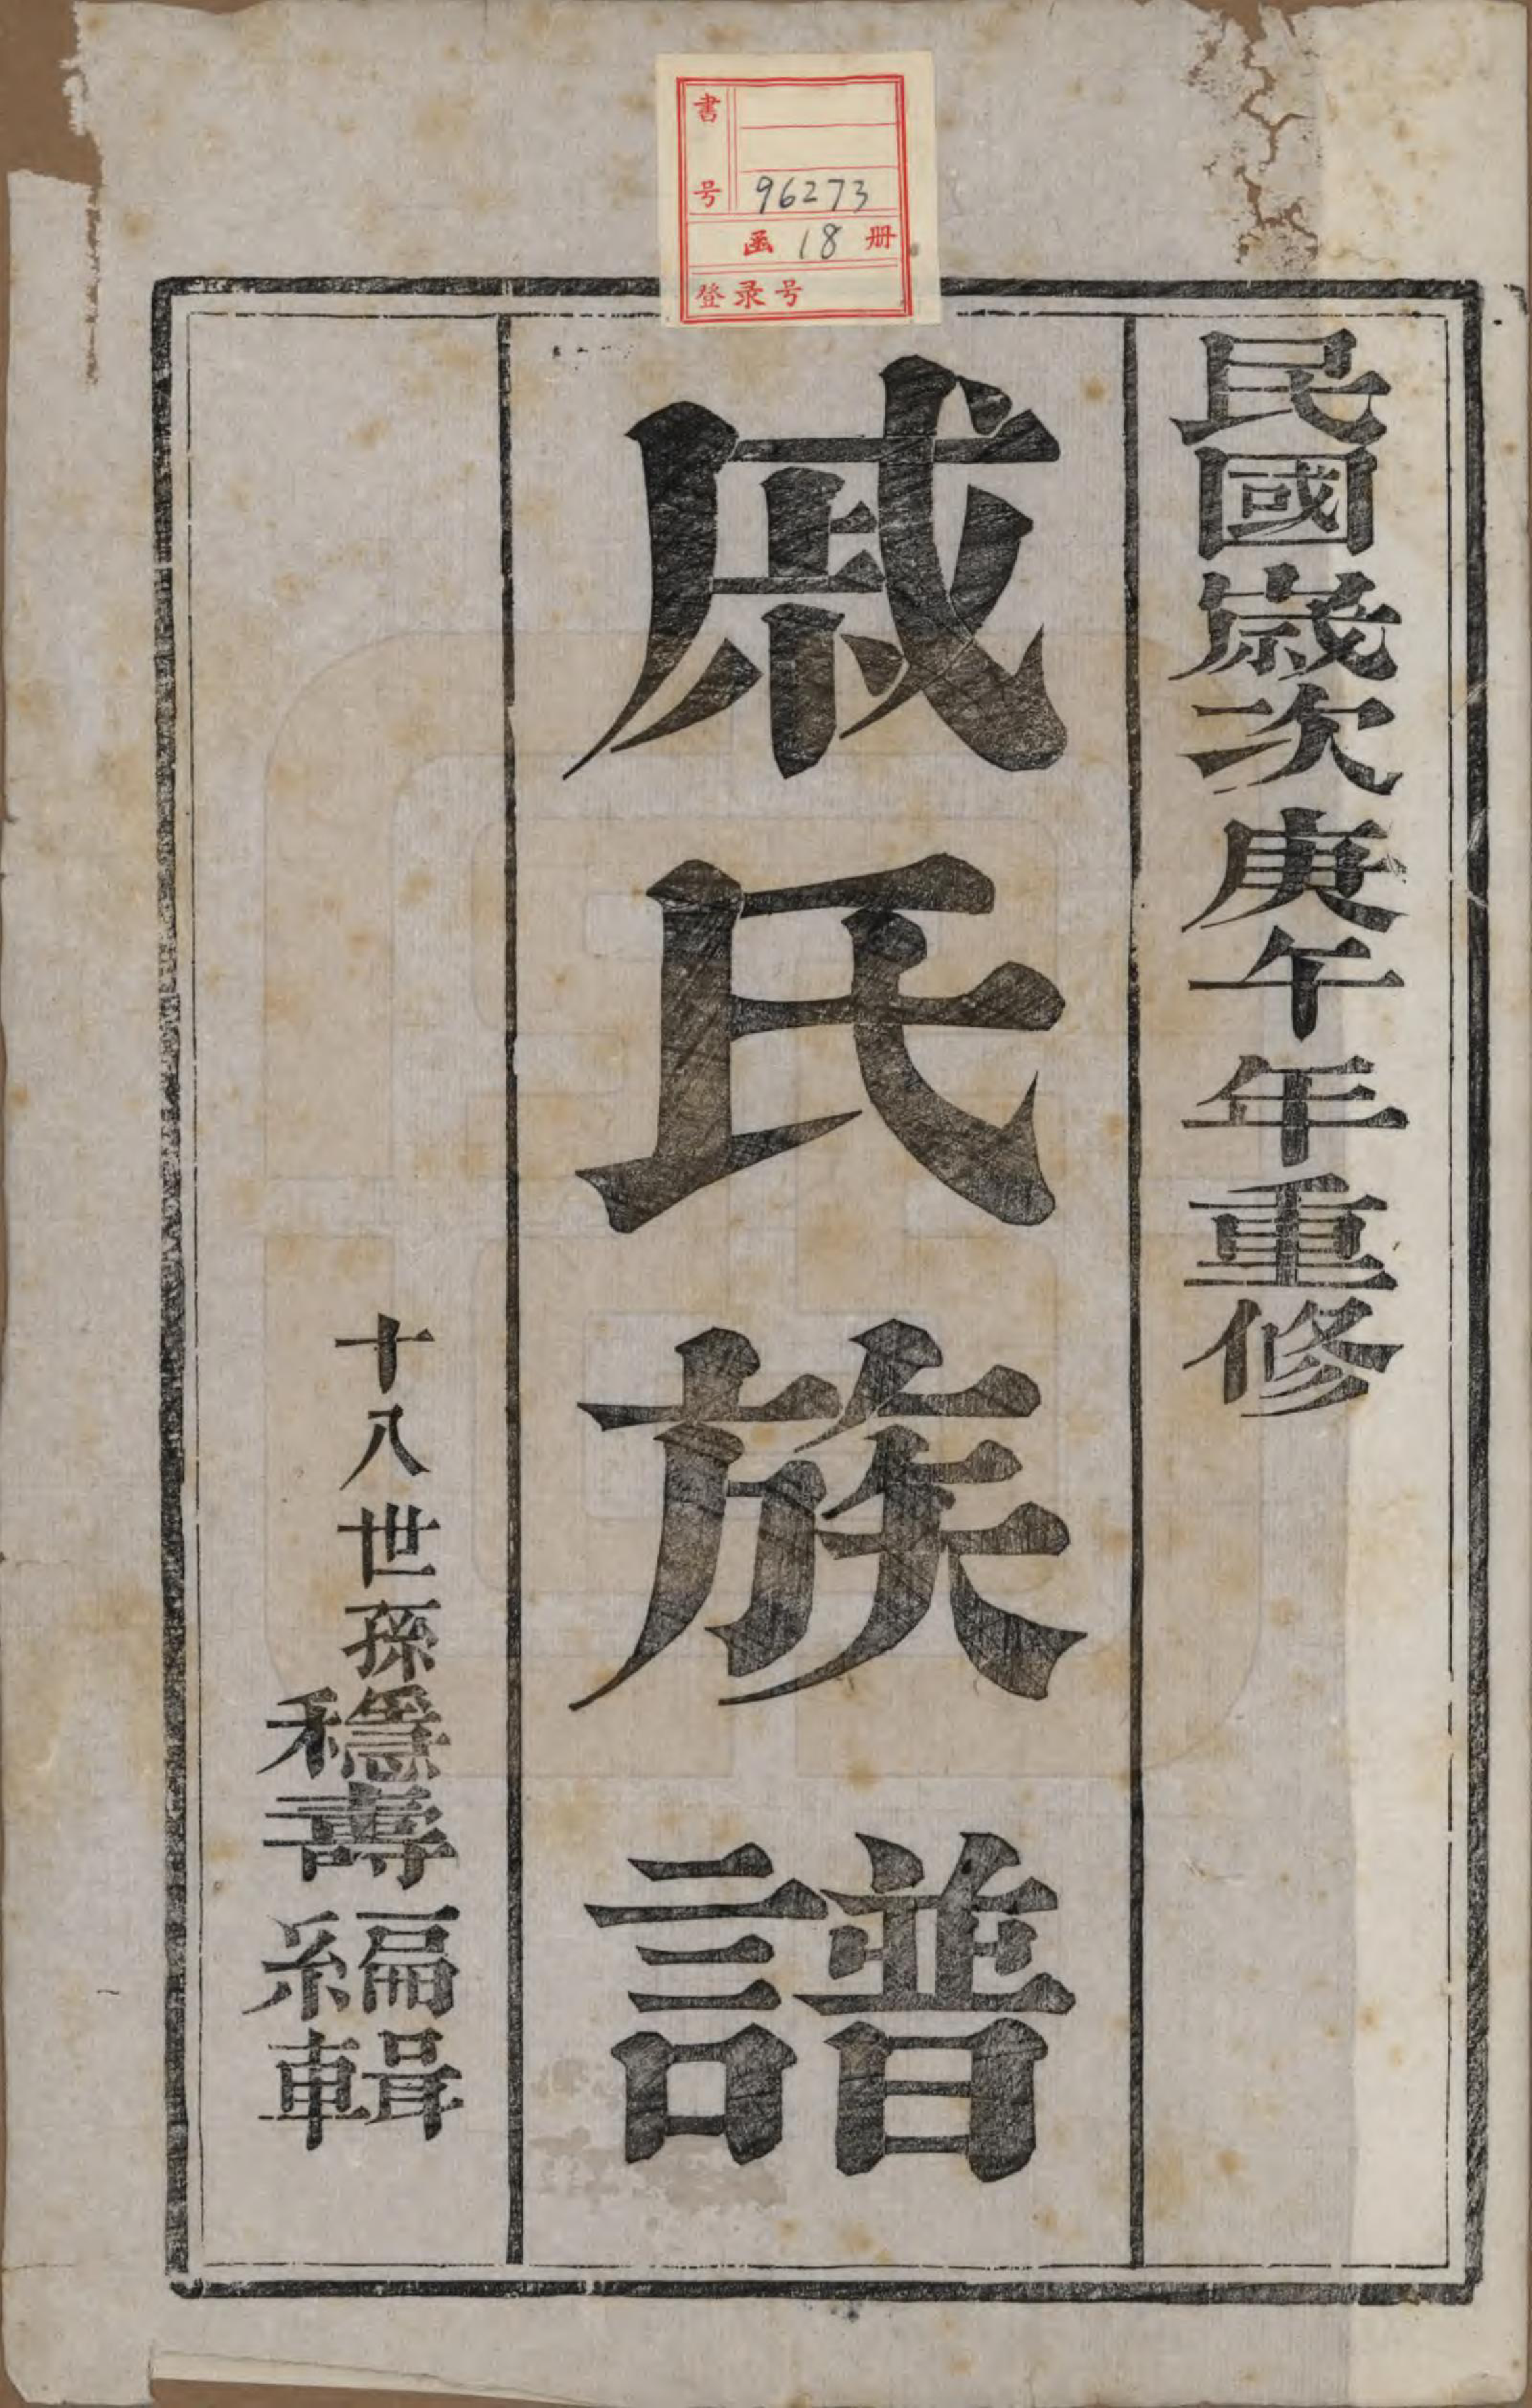 書号 96273
函 18 册
登录号
民國歲次庚午年重修
戚氏族譜
十八世孫穩壽編輯